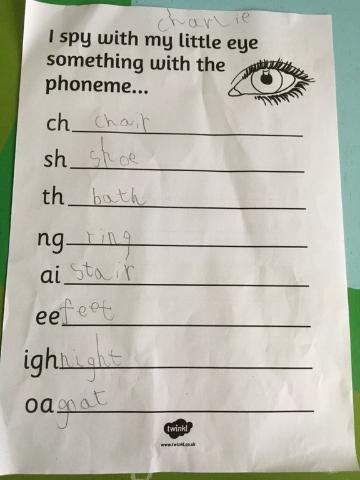 charlie
I spy with my little eye
something with the
phoneme...
ch chair
sh shoe
th bath
ng ring
ai stair
ee feet
igh night
oa goat
twinkl
www.twinkl.co.uk